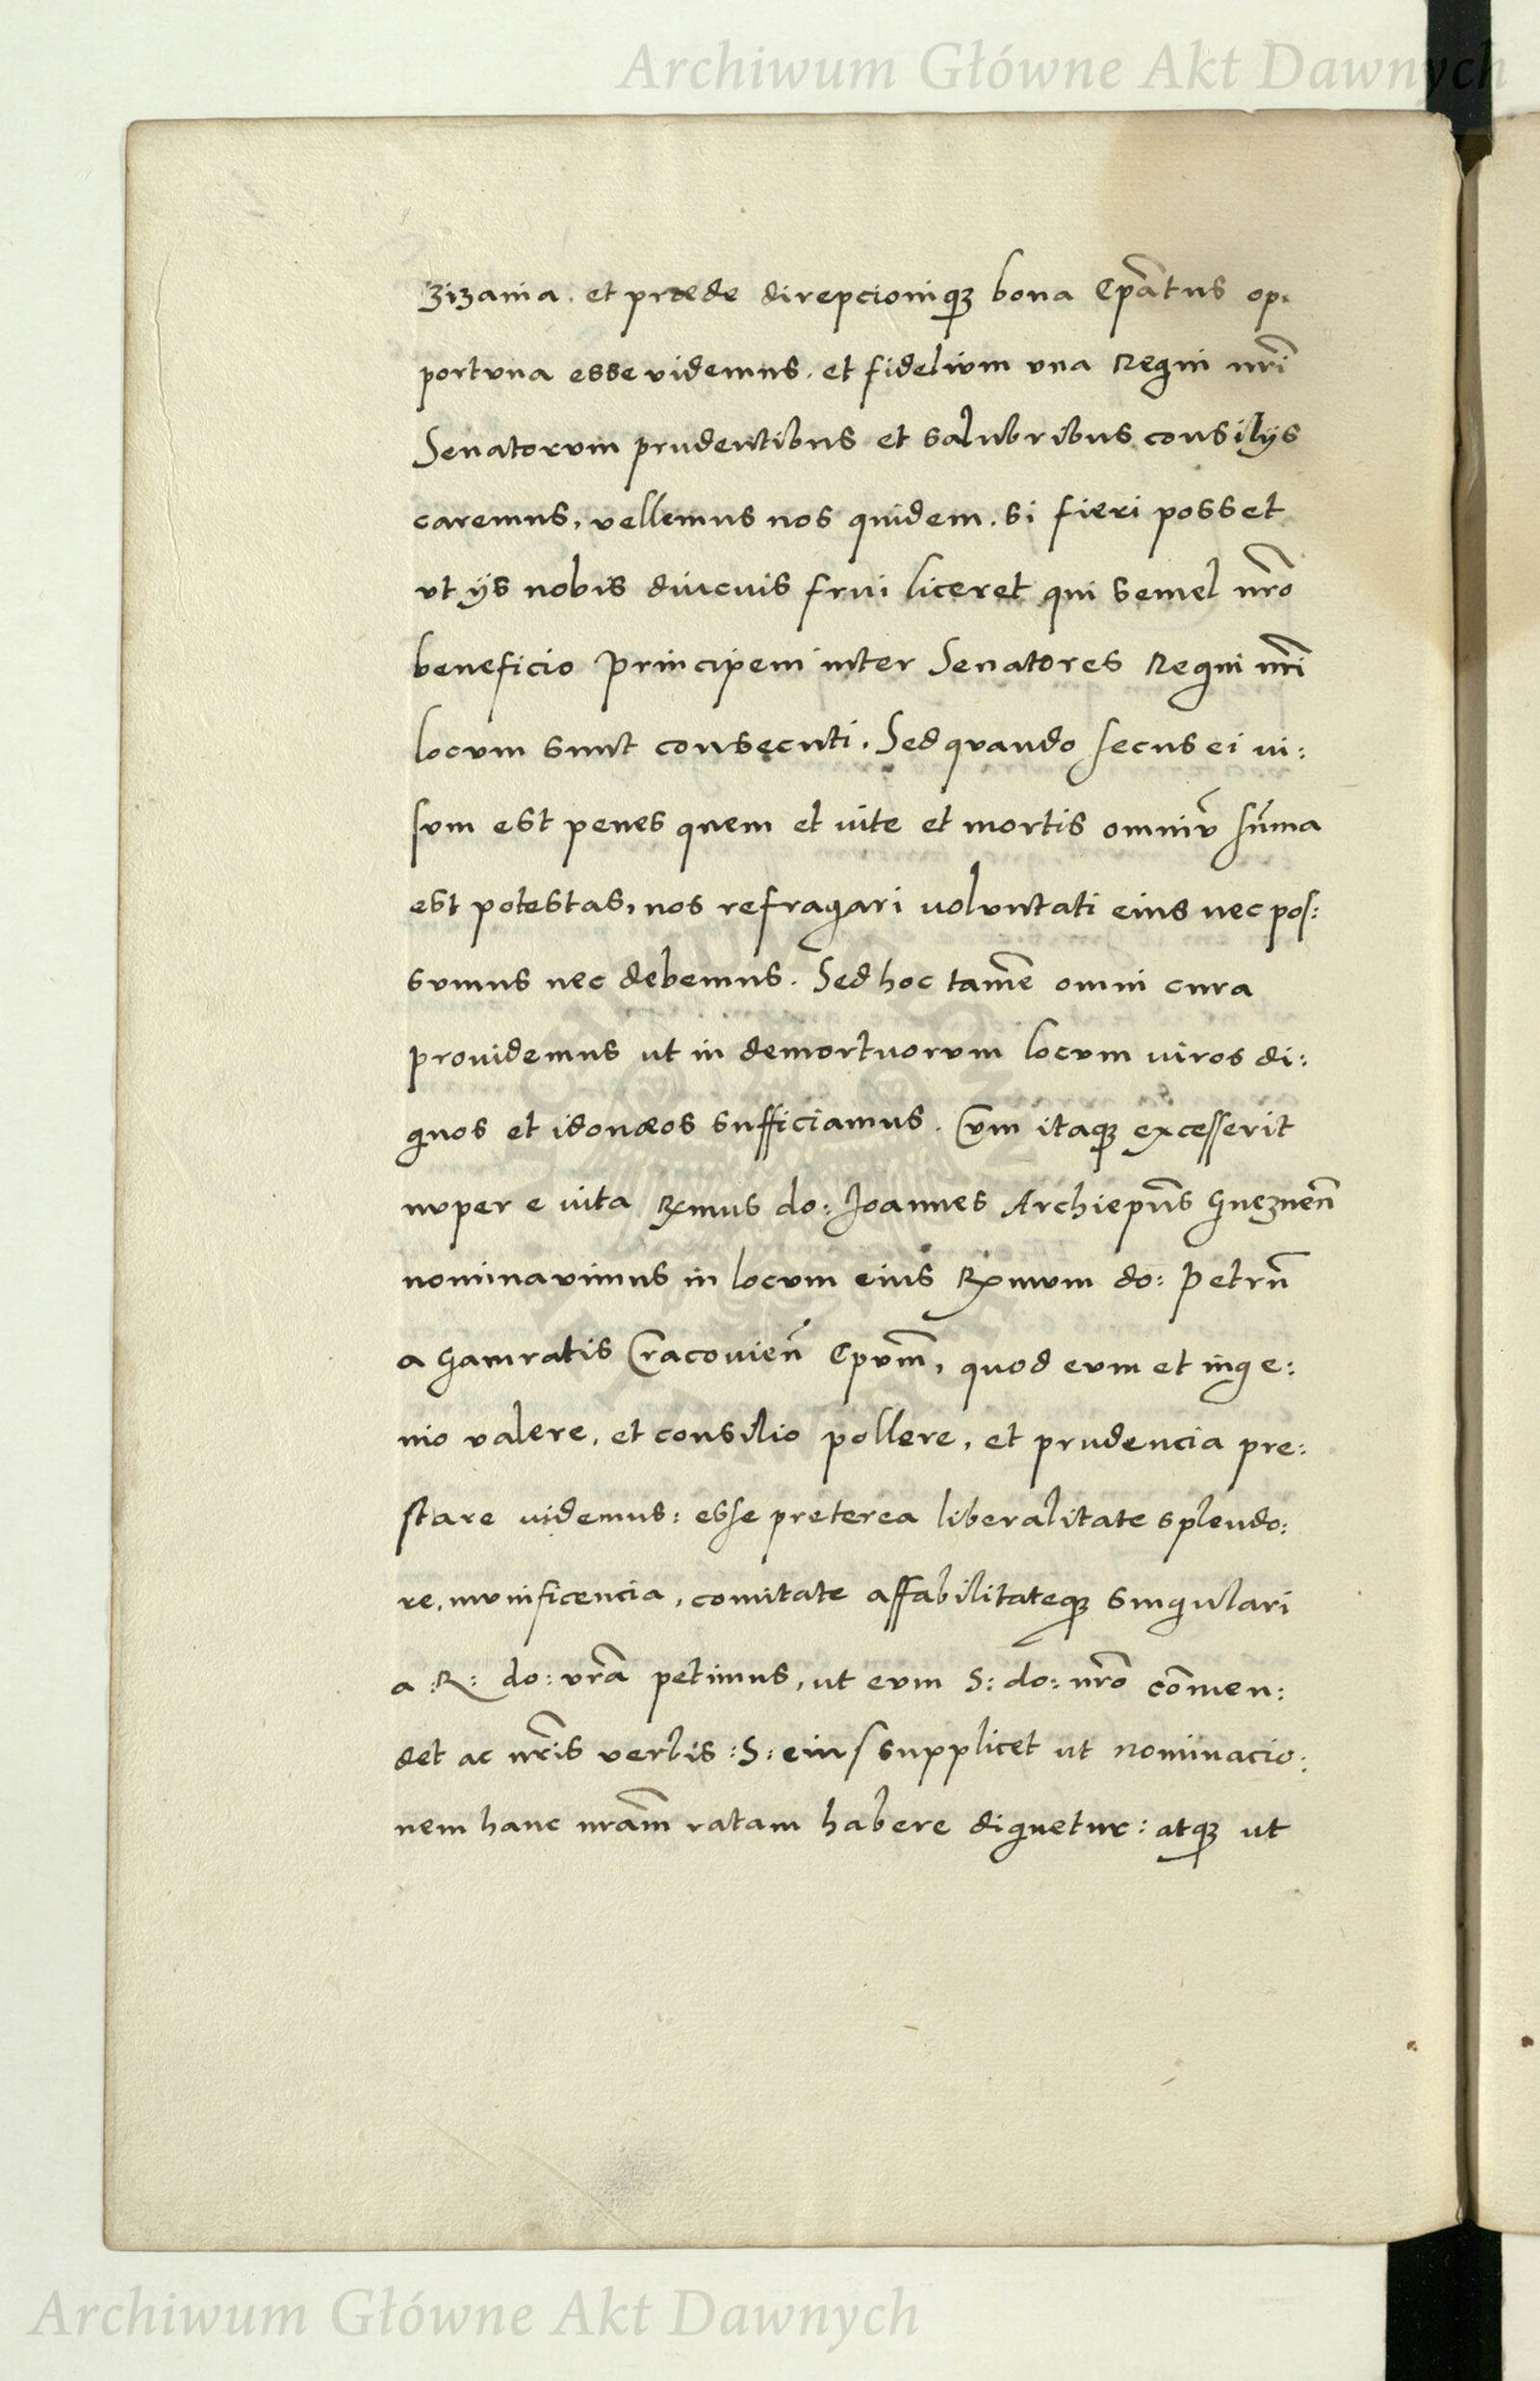 Archiwum Główne Akt Dawnych
zizania. et præde direpcioniq₃ bona Ep̄atus op:
portuna esse videmus. et fidelium una Regni nr̄i
Senatorum prudentibus et salubribus consilijs
caremus, vellemus nos quidem. si fieri posset
ut ijs nobis diucius frui liceret qui semel nr̄o
beneficio principem inter Senatores Regni nr̄i
locum sunt consecuti. Sed quando secus ei ui:
sum est penes quem et uite et mortis omniū sūma
est potestas, nos refragari voluntati eius nec pos:
sumus nec debemus. Sed hoc tamē omni cura
prouidemus ut in demortuorum locum uiros di:
gnos et idonæos sufficiamus. Cum itaq₃ excesserit
nuper e uita Rx̄mus do: Joannes Archiepūs Gneznen̄
nominauimus in locum eius Rx̄mum do: Petrū
a Gamratis Cracouien̄ Epum̄, quod eum et inge:
nio valere, et consilio pollere, et prudencia pre:
stare uidemus: esse preterea liberalitate splendo:
re, munificencia, comitate affabilitateq₃ singulari
a :R: do: vr̄a petimus, ut eum S: do: nr̄o cōmen:
det ac nr̄is verbis :S: eius supplicet ut nominacio:
nem hanc nr̄am ratam habere dignetur: atq₃ ut
Archiwum Główne Akt Dawnych